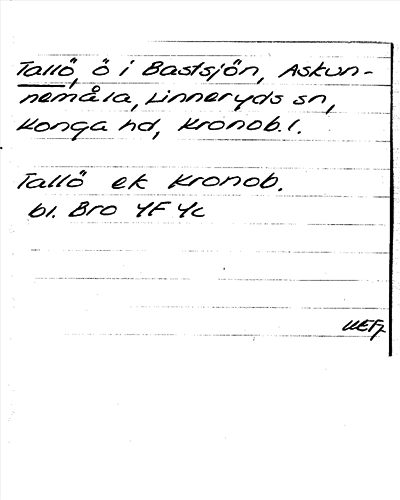 Tallö, ö i Bastsjön, Askun-
nemåla, Linneryds sn,
Konga hd, Kronob. l.
Tallö ek Kronob.
bl. Bro 4F 4c